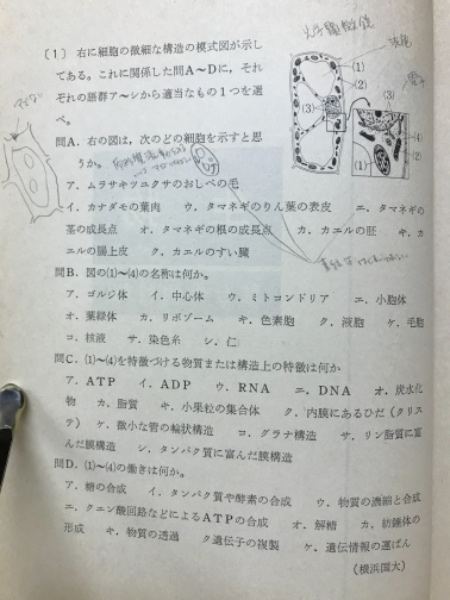 〔1〕 右に細胞の微細な構造の模式図が示し
てある。これに関係した問A～Dに，それ
ぞれの語群ア～シから適当なもの1つを選
べ。
問A．右の図は，次のどの細胞を示すと思
うか。
ア．ムラサキツユクサのおしべの毛
イ．カナダモの葉肉 ウ．タマネギのりん葉の表皮 エ．タマネギの
茎の成長点 オ．タマネギの根の成長点 カ．カエルの胚 キ．カ
エルの腸上皮 ク．カエルのすい臓
問B．図の⑴～⑷の名称は何か。
ア．ゴルジ体 イ．中心体 ウ．ミトコンドリア エ．小胞体
オ．葉緑体 カ．リボゾーム キ．色素胞 ク．液胞 ケ．毛胞
コ．核液 サ．染色糸 シ．仁
問C．⑴～⑷を特徴づける物質または構造上の特徴は何か
ア．ATP イ．ADP ウ．RNA エ．DNA オ．炭水化
物 カ．脂質 キ．小果粒の集合体 ク．内膜にあるひだ（クリス
テ） ケ．微小な管の輪状構造 コ．グラナ構造 サ．リン脂質に富
んだ膜構造 シ．タンパク質に富んだ膜構造
問D．⑴～⑷の働きは何か。
ア．糖の合成 イ．タンパク質や酵素の合成 ウ．物質の濃縮と合成
エ．クエン酸回路などによるATPの合成 オ．解糖 カ．紡錘体の
形成 キ．物質の透過 ク遺伝子の複製 ケ．遺伝情報の運ぱん
（横浜国大）
光学顕微鏡
液胞
(1)
(2)
(3)
(3)
(4)
(2)
(1)